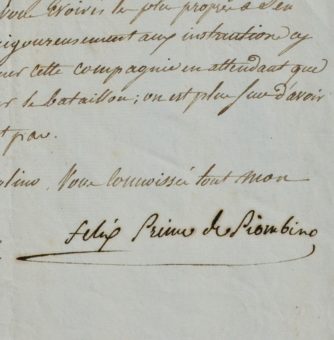 Vous croirés le plus propres à s'en
rigoureusement aux instruction cy
cette compagnie en attendant que
r le bataillon; on est plus sur d'avoir
t pas.
Vous connoissés tout mon
Felix Prince de Piombino